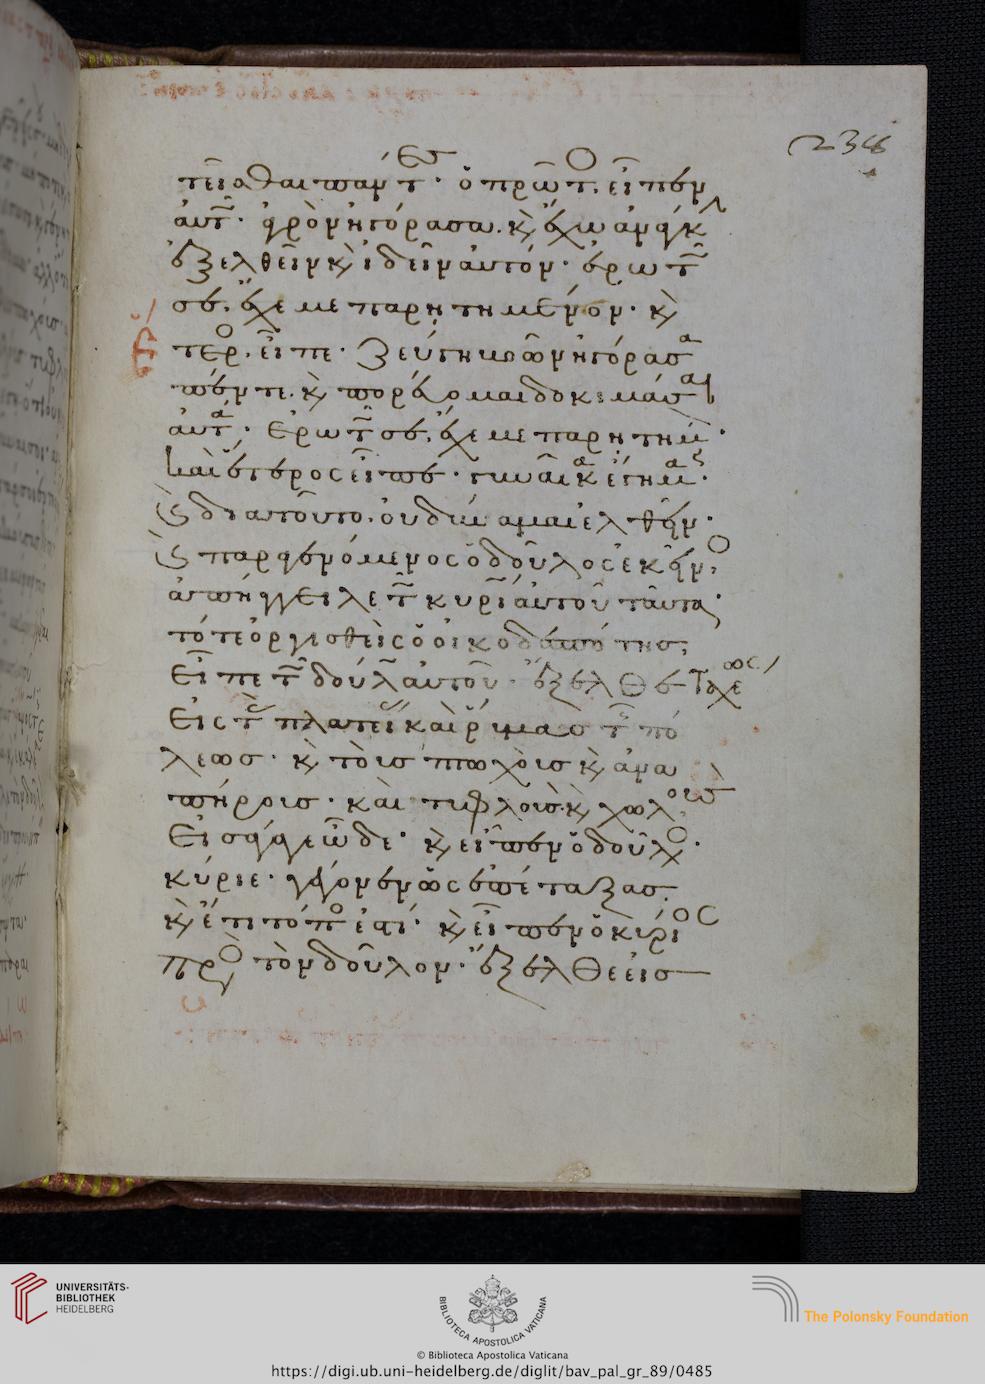 238
τεῖσθαι πάντ(ες)· ὁ πρῶτο(ς) εἶπεν
αὐτῶ· ἀγρὸν ἠγόρασα. κ(αὶ) ἔχω ἀνάγκ(ην)
ἐξελθεῖν κ(αὶ) ἰδεῖν αὐτόν· ἐρωτῶ
σε. ἔχε με παρητημένον· κ(αὶ)
ἕτερο(ς) εἶπε· ζεύγη βοῶν ἠγόρασα
πέντε. κ(αὶ) πορεύομαι δοκιμάσαι
αὐτά· ἐρωτῶ σε, ἔχε με παρητημ(ένον)·
καὶ ἕτερος εἶπε· γυναῖκα ἔγημα·
κ(αὶ) διατοῦτο. οὐ δύναμαι ἐλθεῖν·
κ(αὶ) παραγενόμενος ὁ δοῦλος ἐκεῖνο(ς)
ἀπήγγειλε τῶ κυρίω αὐτοῦ ταῦτα·
τότε ὀργισθεὶς ὁ οἰκοδεσπότης,
εἶπε τῶ δούλω αὐτοῦ· ἔξελθε ταχέως
εἰς τ(ὰς) πλατεί(ας) καὶ ῥύμας τῆς πό
λεως· κ(αὶ) τοὺς πτωχοὺς κ(αὶ) ἀνα
πήρους· καὶ τυφλοὺς κ(αὶ) χωλοὺς
εἰσάγαγε ὧδε· κ(αὶ) εἶπεν ὁ δοῦλο(ς)·
κύριε· γέγονεν ὡς ἐπέταξας
κ(αὶ) ἔτι τόπο(ς) ἐστί· κ(αὶ) εἶπεν ὁ κύριος
πρὸ(ς) τὸν δοῦλον· ἔξελθε εἰς
UNIVERSITÄTS-
BIBLIOTHEK
HEIDELBERG
BIBLIOTECA APOSTOLICA VATICANA
The Polonsky Foundation
© Biblioteca Apostolica Vaticana
https://digi.ub.uni-heidelberg.de/diglit/bav_pal_gr_89/0485